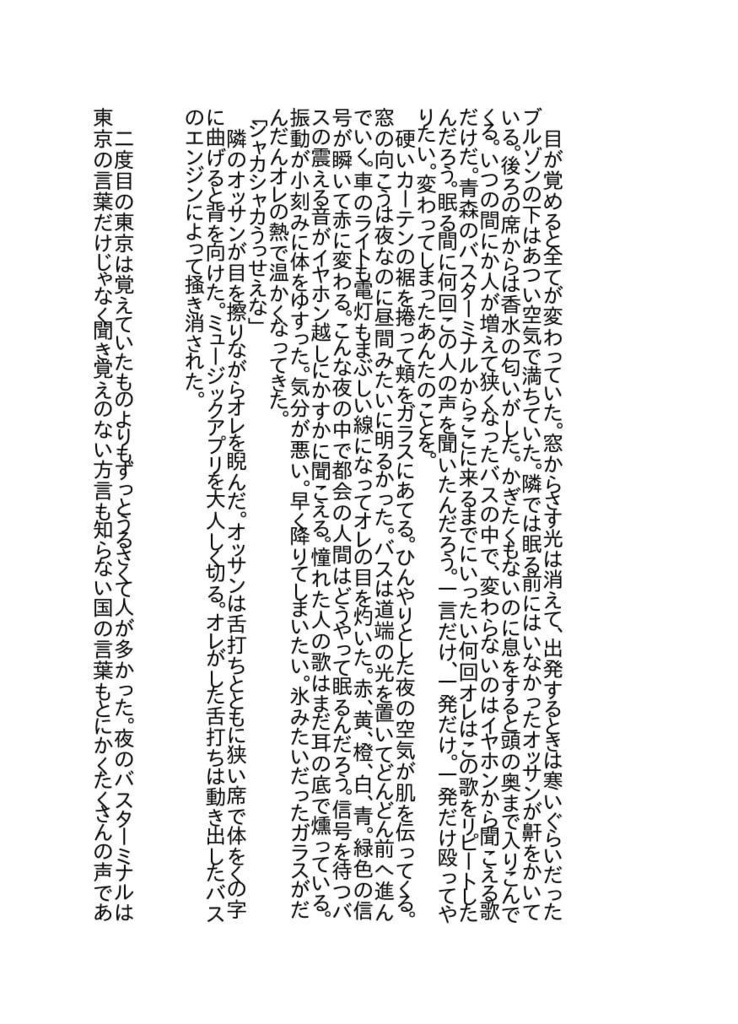 目が覚めると全てが変わっていた。窓からさす光は消えて、出発するときは寒いぐらいだった
ブルゾンの下はあつい空気で満ちていた。隣では眠る前にはいなかったオッサンが鼾をかいて
いる。後ろの席からは香水の匂いがした。かぎたくもないのに息をすると頭の奥まで入りこんで
くる。いつの間にか人が増えて狭くなったバスの中で、変わらないのはイヤホンから聞こえる歌
だけだ。青森のバスターミナルからここに来るまでにいったい何回オレはこの歌をリピートした
んだろう。眠る間に何回この人の声を聞いたんだろう。一言だけ、一発だけ。一発だけ殴ってや
りたい。変わってしまったあんたのことを。
硬いカーテンの裾を捲って頬をガラスにあてる。ひんやりとした夜の空気が肌を伝ってくる。
窓の向こうは夜なのに昼間みたいに明るかった。バスは道端の光を置いてどんどん前へ進ん
でいく。車のライトも電灯もまぶしい線になってオレの目を灼いた。赤、黄、橙、白、青。緑色の信
号が瞬いて赤に変わる。こんな夜の中で都会の人間はどうやって眠るんだろう。信号を待つバ
スの震える音がイヤホン越しにかすかに聞こえる。憧れた人の歌はまだ耳の底で燻っている。
振動が小刻みに体をゆすった。気分が悪い。早く降りてしまいたい。氷みたいだったガラスがだ
んだんオレの熱で温かくなってきた。
「シャカシャカうっせえな」
隣のオッサンが目を擦りながらオレを睨んだ。オッサンは舌打ちとともに狭い席で体をくの字
に曲げると背を向けた。ミュージックアプリを大人しく切る。オレがした舌打ちは動き出したバス
のエンジンによって掻き消された。
二度目の東京は覚えていたものよりもずっとうるさくて人が多かった。夜のバスターミナルは
東京の言葉だけじゃなく聞き覚えのない方言も知らない国の言葉もとにかくたくさんの声であ